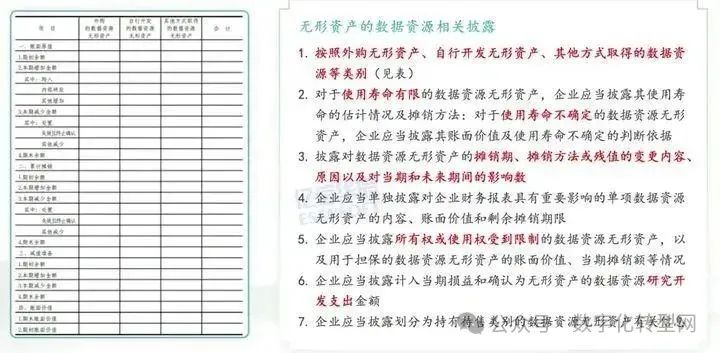 项 目
外购的数据资源无形资产
自行开发的数据资源无形资产
其他方式取得的数据资源无形资产
合 计
一、账面原值
1.期初余额
2.本期增加金额
其中：购入
内部研发
其他增加
3.本期减少金额
其中：处置
失效且终止确认
其他减少
4.期末余额
二、累计摊销
1.期初余额
2.本期增加金额
3.本期减少金额
其中：处置
失效且终止确认
其他减少
4.期末余额
三、减值准备
1.期初余额
2.本期增加金额
3.本期减少金额
4.期末余额
四、账面价值
1.期末账面价值
2.期初账面价值
无形资产的数据资源相关披露
1. 按照外购无形资产、自行开发无形资产、其他方式取得的数据资
源等类别（见表）
2. 对于使用寿命有限的数据资源无形资产，企业应当披露其使用寿
命的估计情况及摊销方法；对于使用寿命不确定的数据资源无形
资产，企业应当披露其账面价值及使用寿命不确定的判断依据
3. 披露对数据资源无形资产的摊销期、摊销方法或残值的变更内容、
原因以及对当期和未来期间的影响数
4. 企业应当单独披露对企业财务报表具有重要影响的单项数据资源
无形资产的内容、账面价值和剩余摊销期限
5. 企业应当披露所有权或使用权受到限制的数据资源无形资产，以
及用于担保的数据资源无形资产的账面价值、当期摊销额等情况
6. 企业应当披露计入当期损益和确认为无形资产的数据资源研究开
发支出金额
7. 企业应当披露划分为持有待售类别的数据资源无形资产有关信息
公众号 · 数字化转型网